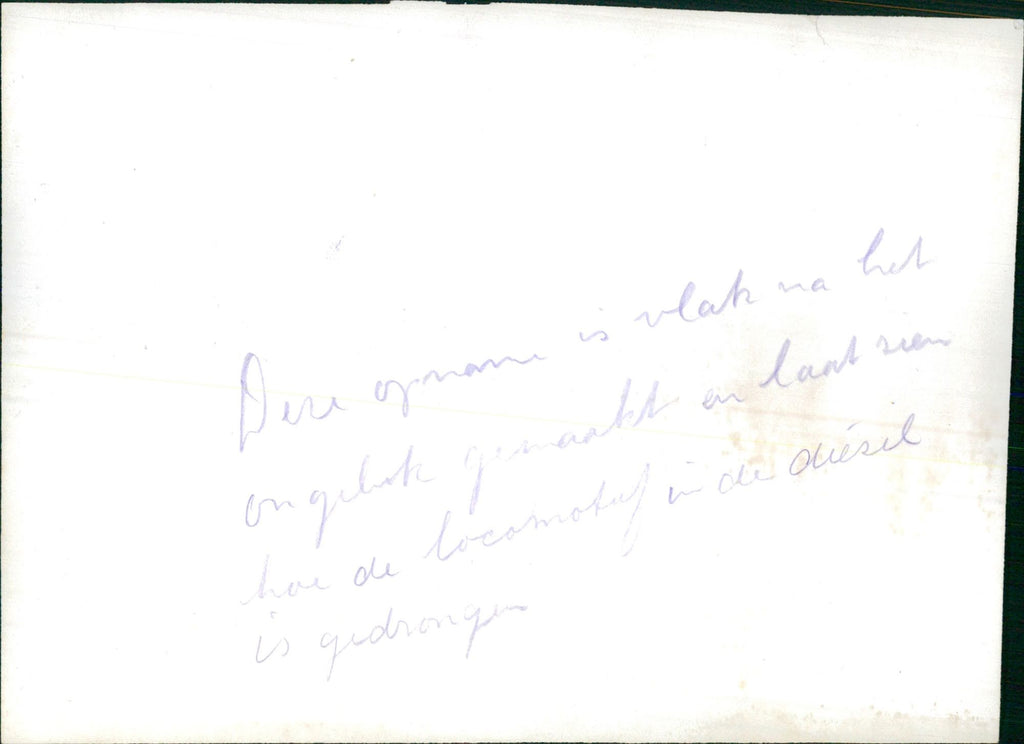 Deze opname is vlak na het
ongeluk gemaakt en laat zien
hoe de locomotief in de diésel
is gedrongen